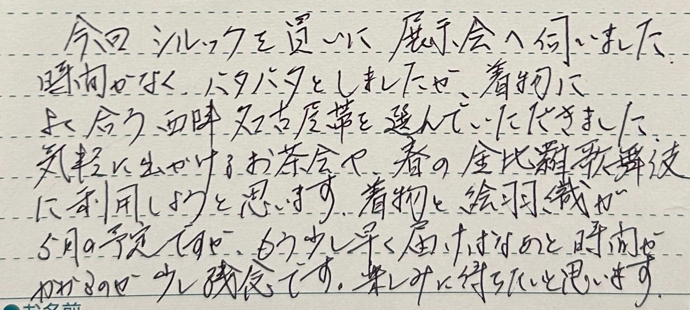 今回 シルックを買いに 展示会へ伺いました.
時間がなく バタバタとしましたが、着物に
よく合う 西陣 名古屋帯を選んでいただきました.
気軽に出かけるお茶会や、春の金比羅歌舞伎
に利用しようと思います. 着物と絵羽織が
5月の予定ですが、もう少し早く届けばなぁと 時間が
かかるのが 少し残念です。楽しみに待ちたいと思います.
●お名前